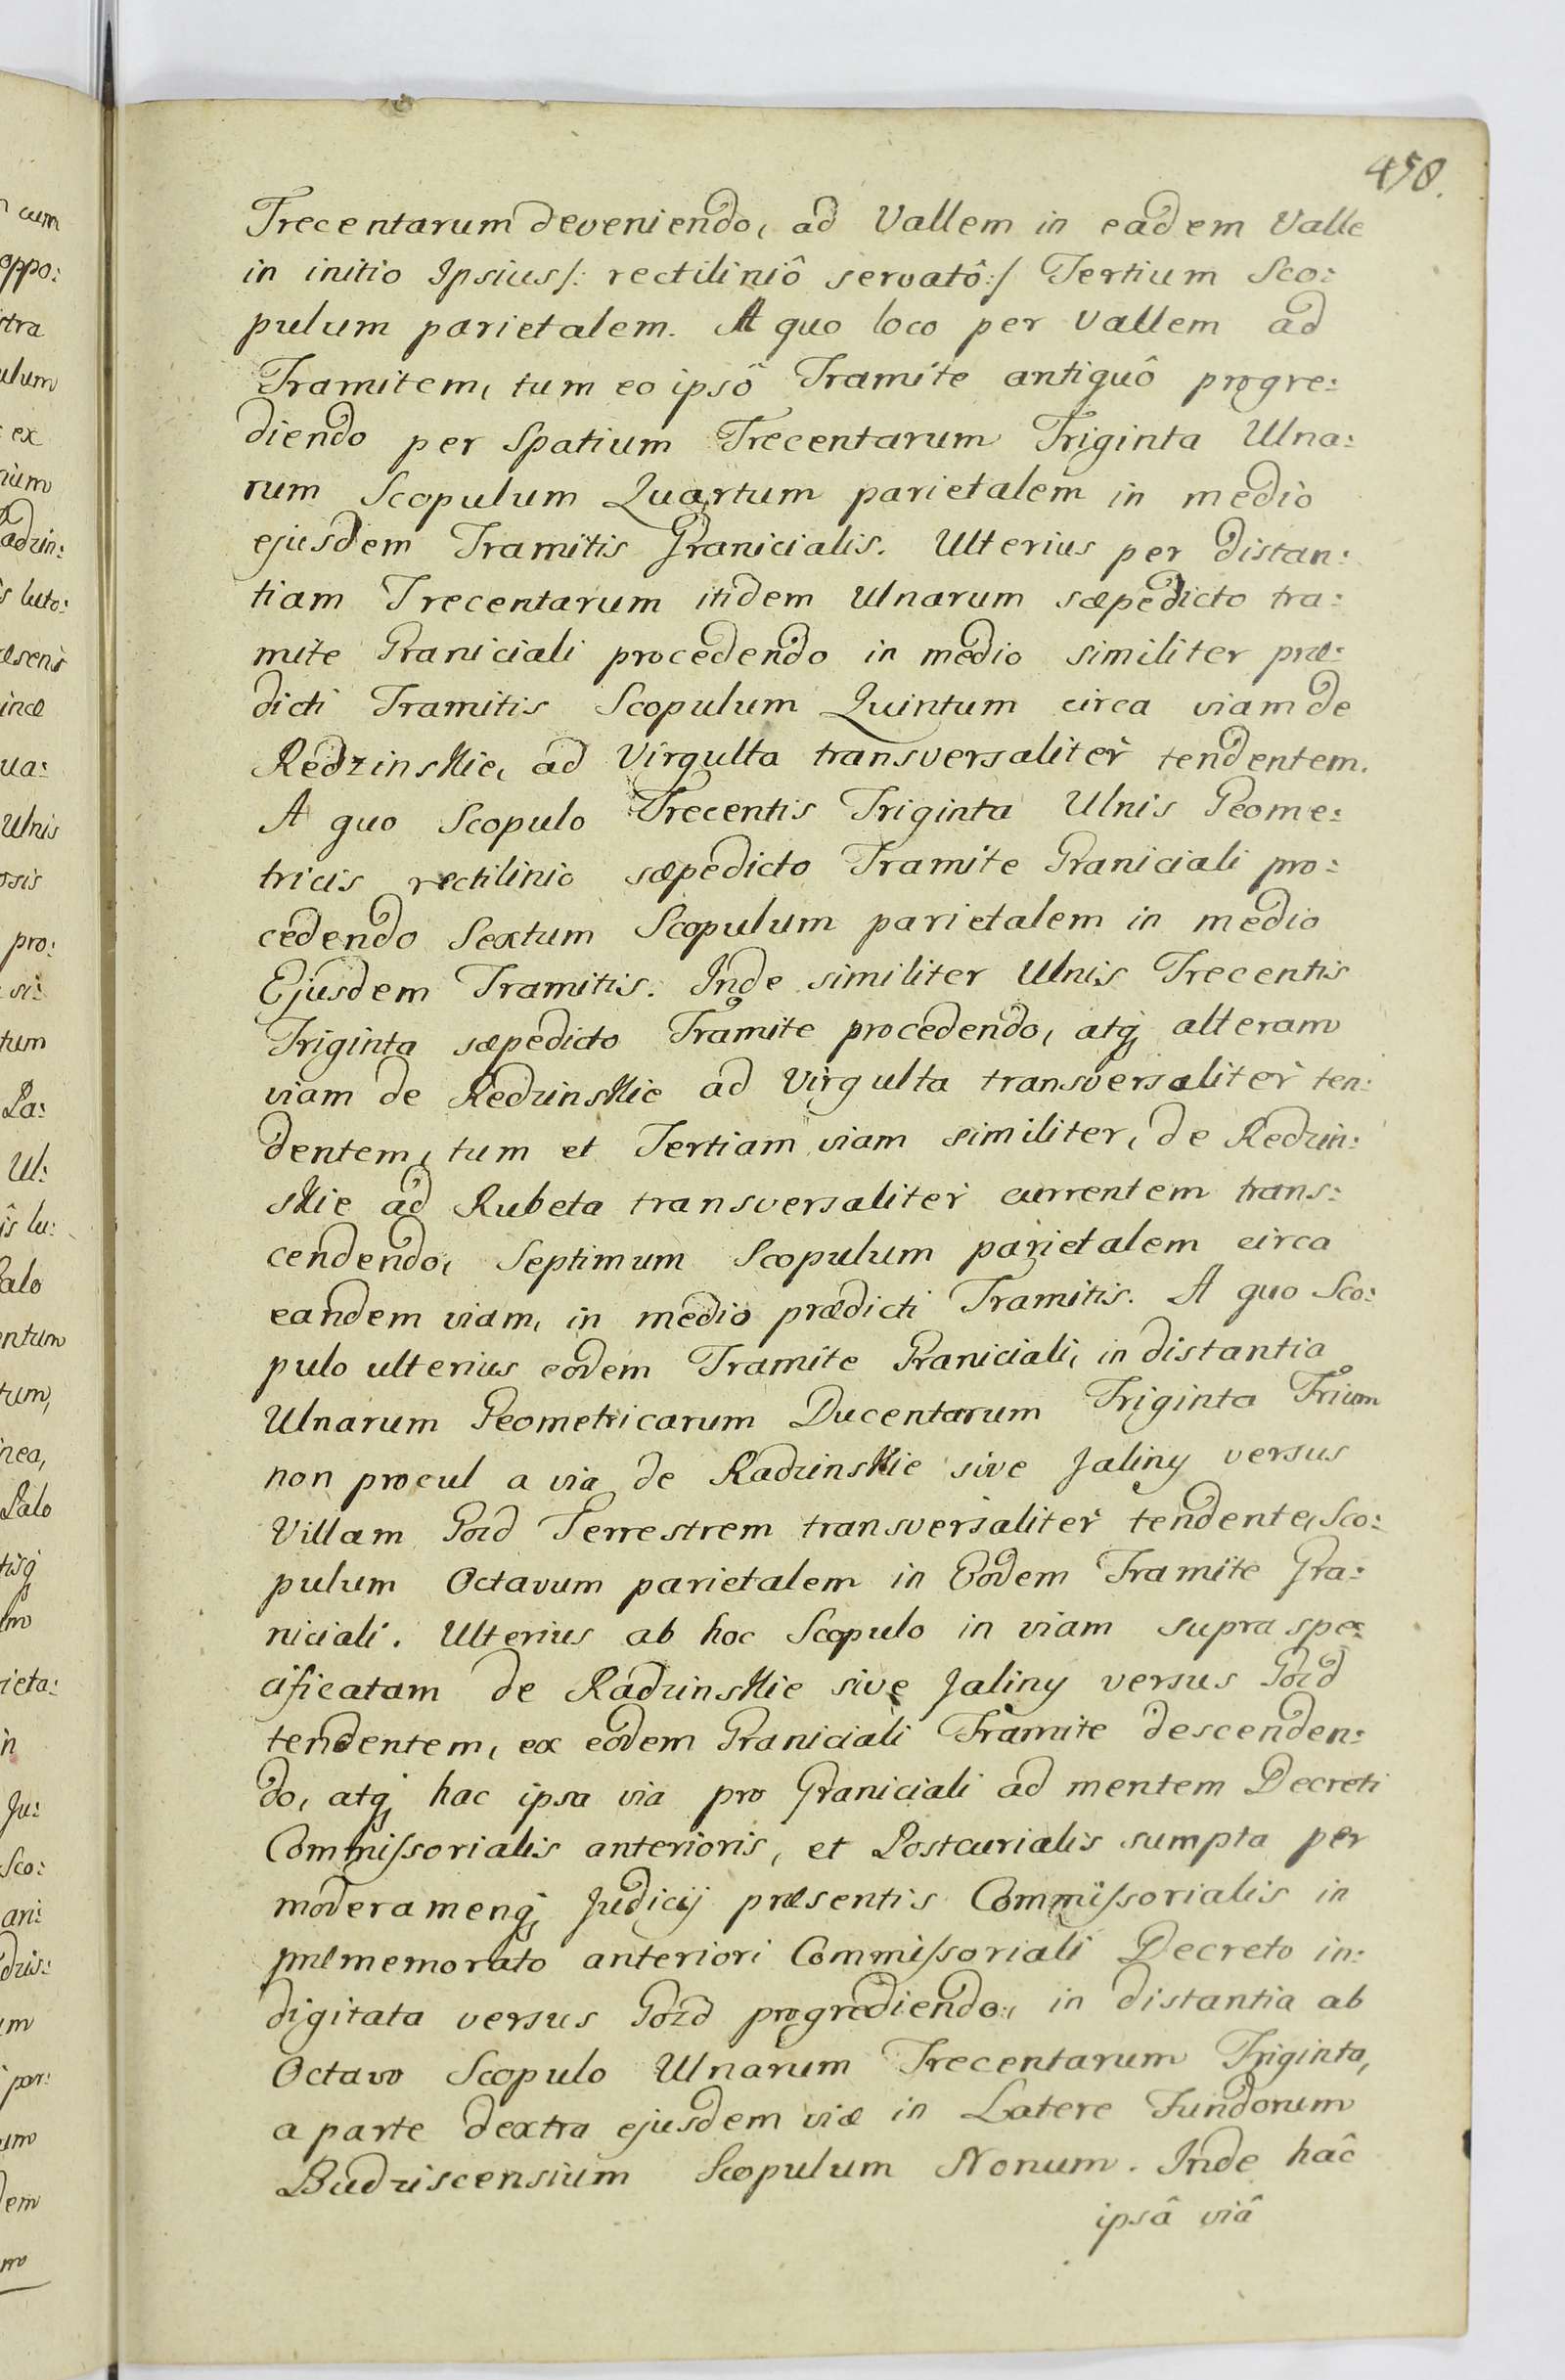 458.
Trecentarum deveniendo, ad Vallem in eadem Valle
in initio Ipsius /: rectiliniô servatô :/ Tertium Sco:
pulum parietalem. A quo loco per Vallem ad
Tramitem, tum eo ipsô Tramite antiquô progre:
diendo per Spatium Trecentarum Triginta Ulna:
rum Scopulum Quartum parietalem in medio
ejusdem Tramitis Granicialis. Ulterius per distan:
tiam Trecentarum itidem Ulnarum sæpedicto tra:
mite Graniciali procedendo in medio similiter præ:
dicti Tramitis Scopulum Quintum circa viam de
Redzinskie, ad Virgulta transversaliter tendentem.
A quo Scopulo Trecentis Triginta Ulnis Geome:
tricis rectilinio sæpedicto Tramite Graniciali pro:
cedendo Sextum Scopulum parietalem in medio
Ejusdem Tramitis. Inde similiter Ulnis Trecentis
Triginta sæpedicto Tramite procedendo, atq alteram
viam de Redzinskie ad Virgulta transversaliter ten:
dentem, tum et Tertiam viam similiter, de Redzin:
skie ad Rubeta transversaliter currentem trans:
cendendo, Septimum Scopulum parietalem circa
eandem viam, in medio prædicti Tramitis. A quo Sco:
pulo ulterius eodem Tramite Graniciali, in distantia
Ulnarum Geometricarum Ducentarum Triginta Trium
non procul a via de Radzinskie sive Jaliny versus
Villam Gozd Terrestrem transversaliter tendente, Sco:
pulum Octavum parietalem in Eodem Tramite Gra:
niciali. Ulterius ab hoc Scopulo in viam supra spe:
cificatam de Radzinskie sive Jaliny versus Gozd
tendentem, ex eodem Graniciali Tramite descenden:
do, atq hac ipsa via pro Graniciali ad mentem Decreti
Commissorialis anterioris, et Postcurialis sumpta per
moderamenq Judicij præsentis Commissorialis in
præmemorato anteriori Commissoriali Decreto in:
digitata versus Gozd progrediendo, in distantia ab
Octavo Scopulo Ulnarum Trecentarum Triginta,
a parte dextra ejusdem viæ in Latere Fundorum
Budziscensium Scopulum Nonum. Inde hâc
ipsâ viâ